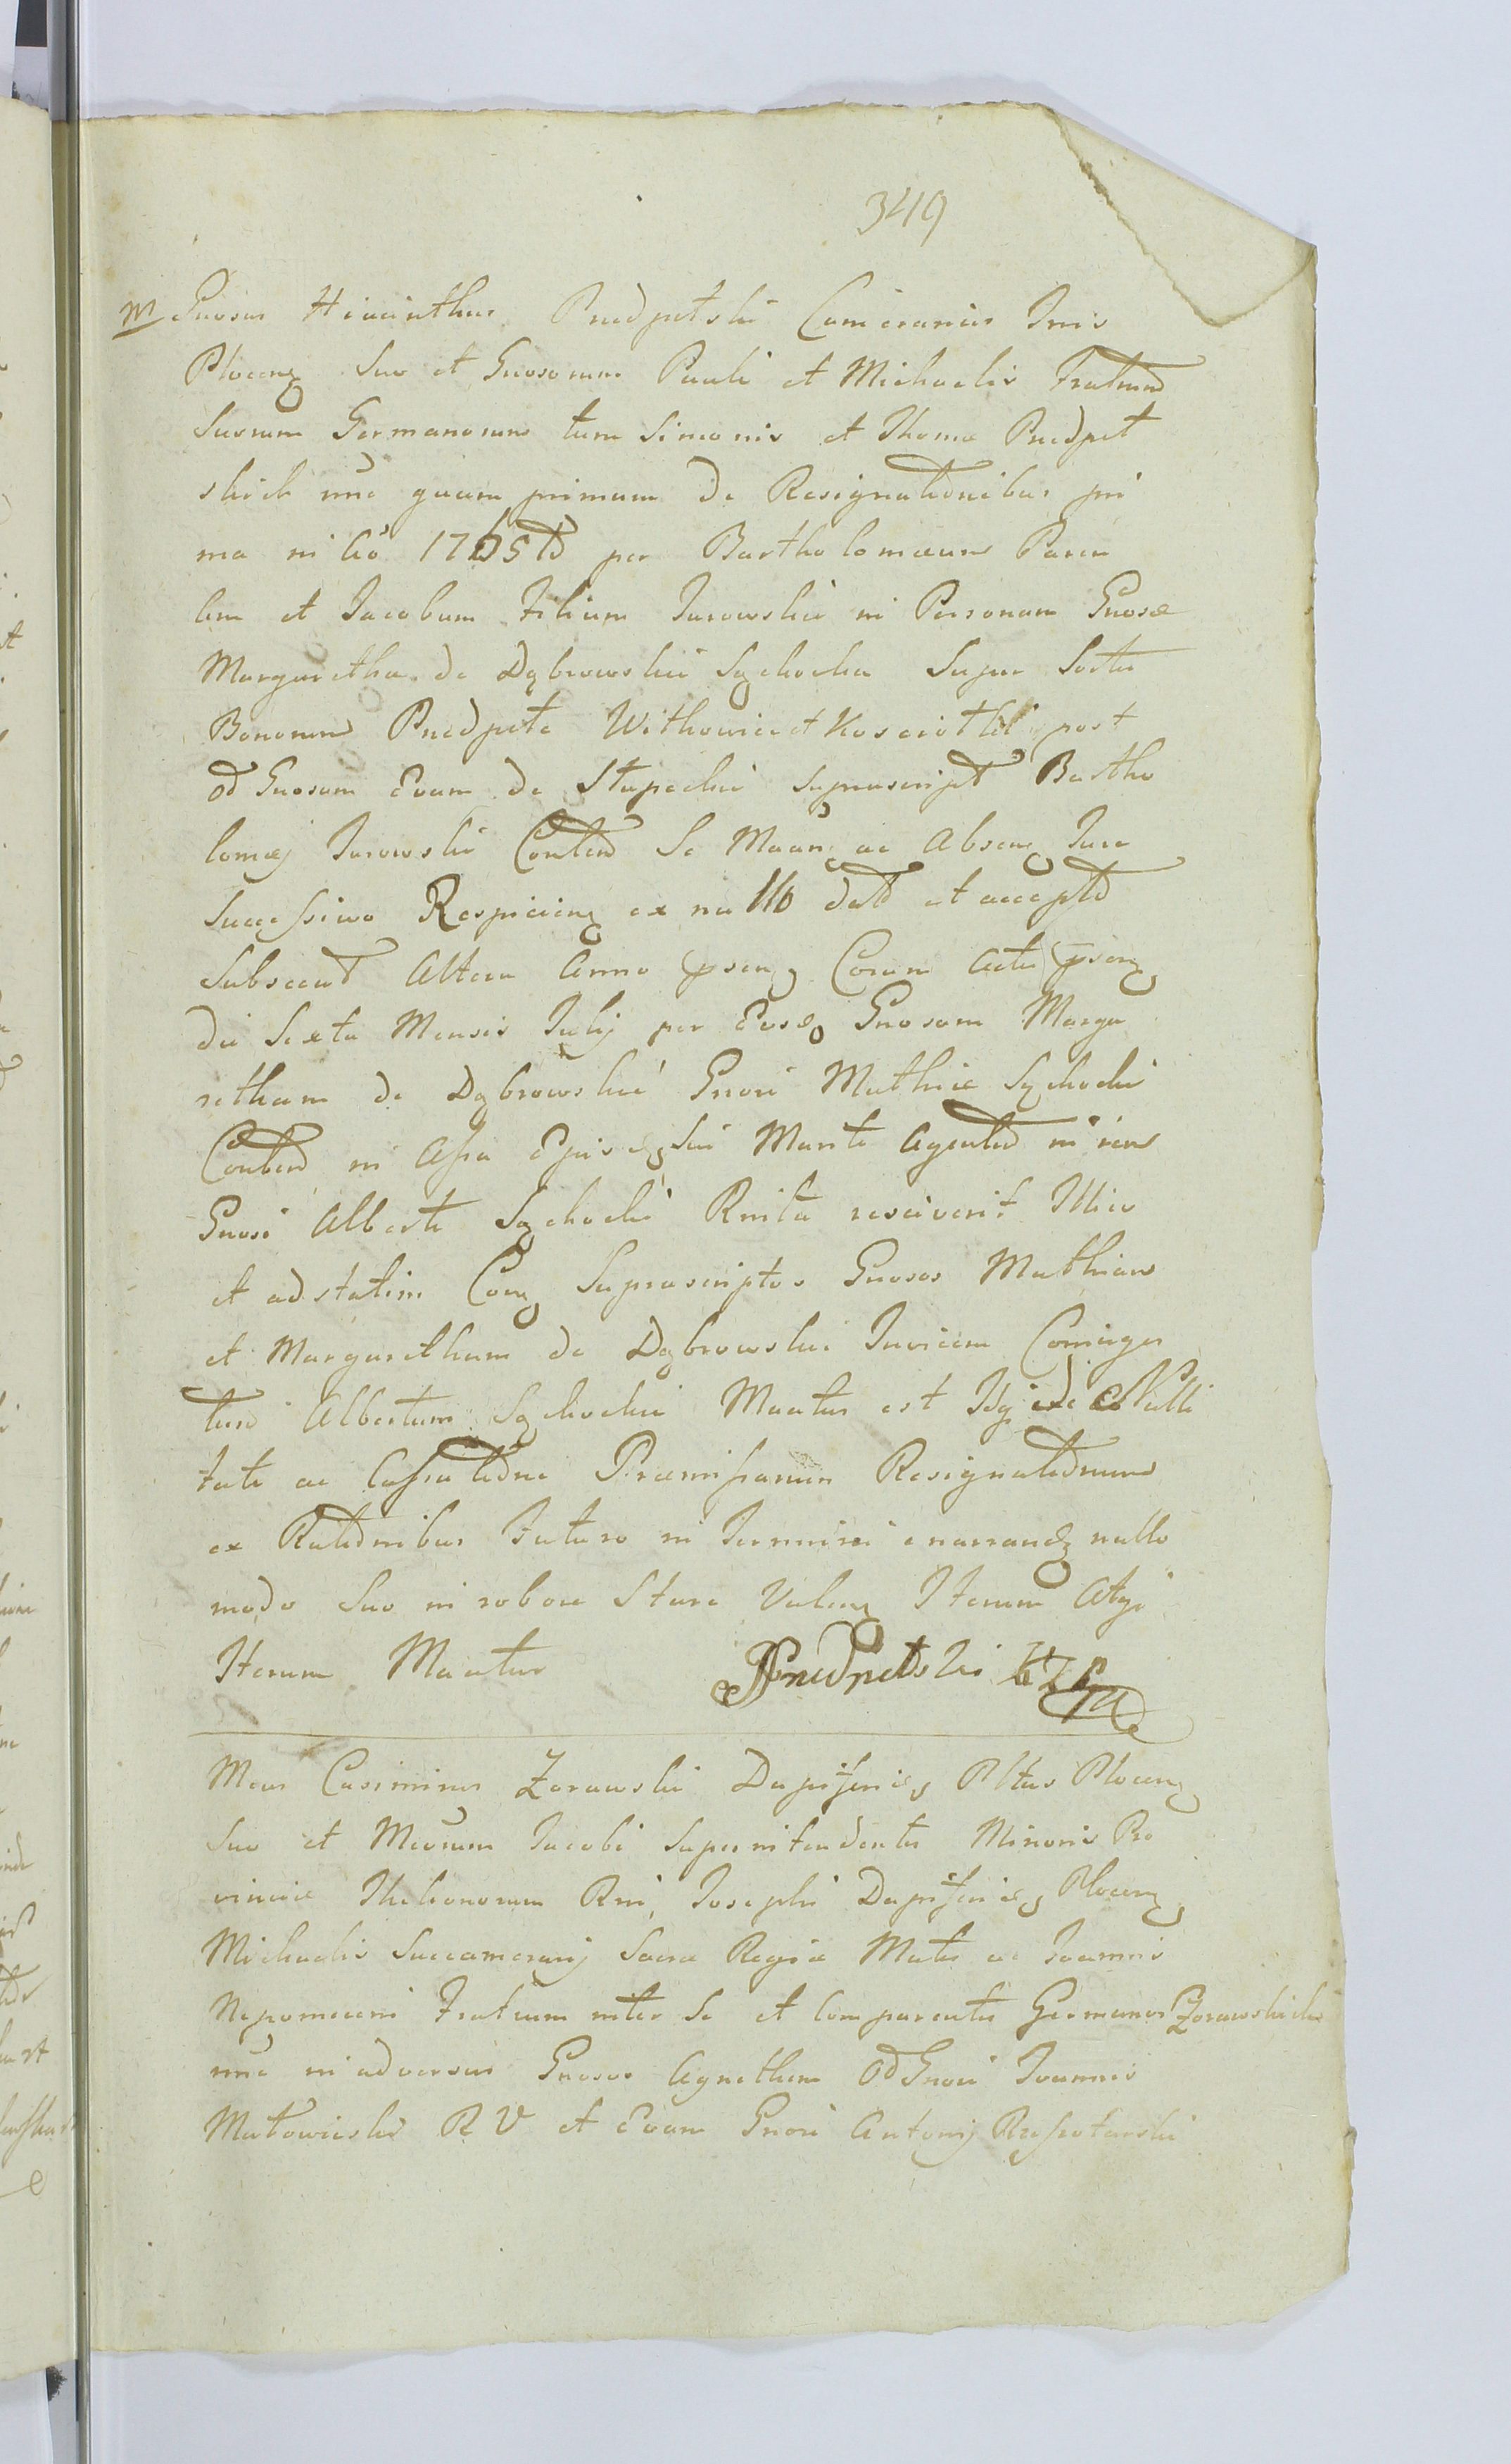 349
M Gnosus Hiacinthus Pnedpetski Camerarius Tnis
Plocenς Suo et Gnosorum Pauli et Michaelis Fratrum
Suorum Germanorum tum Simonis et Thomæ Pnedpet
skich nnc quam primum de Resignationibus pri
ma in Ao 1765 per Bartholomæum Paren
tem et Jacobum Filium Jurowskie in Personam Gnosæ
Margaretha de Dąbrowskie Sychocka Super Sorte
Bonorum Pnedpeta Withowice et post
od Gnosam Evam de Stupeckie suprascript Bartho
lomæj Jurowski Conten Se Maanς ac Absenς Jure
Successivo Respicienς ex nullo dato et accepto
Subsecut Altera Anno psenς Coram Actis psenς
die Sexta Mensis Julij per Gnosam Marga
retham de Dąbrowskie Gnosi Mathiæ Sychocki
in Assa Ejusdς sui Mariti Agentem in rem
Gnosi Alberti Sychocki resciverit Illico
et ad statim Conς Suprascriptos Gnosos Mathiam
et Margaretham de Dąbrowskie Invicem Conjuges
tum Albertum Sychockie Mantus est Nulli
tate ac Cassatione Præmissarum Resignationum
ex Rationibus Futuro in Termino enarrandς nullo
modo Suo in robore Stare Valenς Iterum Atqз
Iterum Mantur Pnedpetski
Mcus Casimirus Zorawski Dapiferidς Pltus Plocenς
Suo et Mcorum Jacobi Superintendentis Minoris Pro
vinciæ Theloneorum Rni, Josephi Dapiferidς Plocenς
Michaelis Succamerarij Sacræ Regiæ Mattis ac Joannis
Nepomuceni Fratrum inter Se et Comparentis Germanor Zorawskich
nnc in adversus Gnosos Agnetham Od Gnosi Joannis
R V et Evam Gnosi Antonij